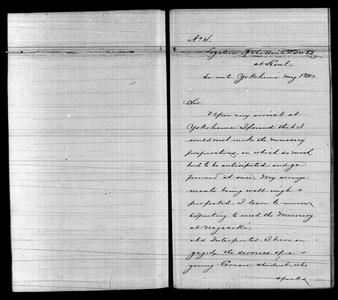 No 4.
Legation of the United States
at Seoul
In
Yokohama May
Sir
Upon my arrival at
Yokohama I found that I
could not make the necessary
preparations, on which so much
had to be anticipated and go
forward at once. My arrange-
ments being well nigh
perfected, I leave to-morrow
expecting to meet the Monocacy
at Nagasaki.
As Interpreter, I have en-
gaged the services of a
young Corean student, who
speaks